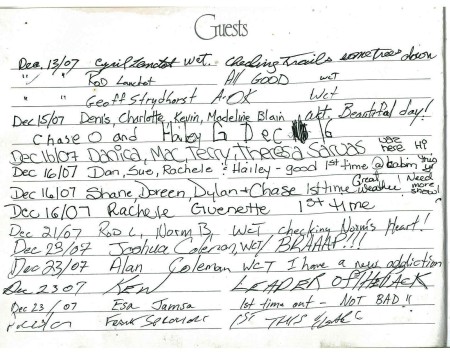 Guests
Dec, 13/07 Cyril Lanctot wct. checking Trails some trees down
" " Rod Lanctot All GOOD wct
" " Geoff Strydhorst A-OK wct
Dec 15/07 Denis, Charlotte, Kevin, Madeline Blain wkt, Beautiful day!
Chase O and Hailey G Dec 16
Dec 16/07 Danica, Mac, Terry, Theresa Sarvas was here HI
Dec 16/07 Dan, Sue, Rachele + Hailey - good 1st time @ cabin this yr
Dec 16/07 Shane, Doreen, Dylan + Chase 1st time Great weather! Need more snow!
Dec 16/07 Rachele Guenette 1st time
Dec 21/07 Rod L, Norm B, WCT checking Norm's Heart!
Dec 23/07 Joshua Coleman, WCT/ BRAAAP!!!
Dec 23/07 Alan Coleman WCT I have a new addiction
Dec 23 07 KEN LEADER OF THE PACK
Dec 23 / 07 Esa Jamsa 1st time out - NOT BAD!!
Frank 1ST THIS